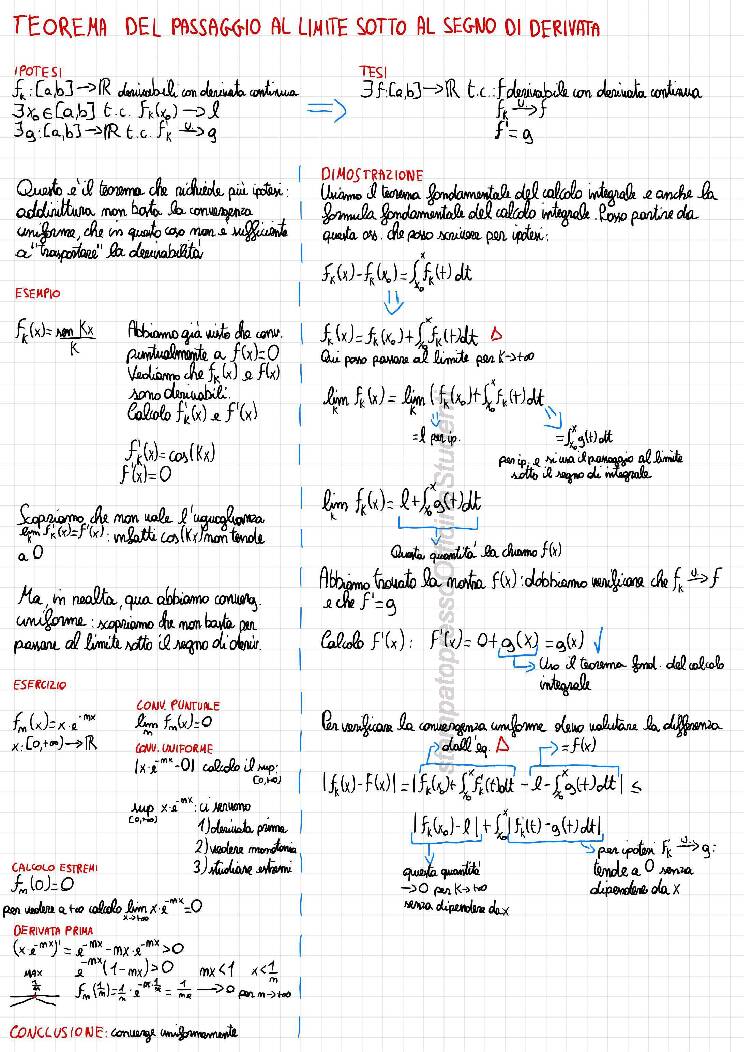 TEOREMA DEL PASSAGGIO AL LIMITE SOTTO AL SEGNO DI DERIVATA
IPOTESI
f_k: [a,b] → ℝ derivabili con derivata continua
∃x₀ ∈ [a,b] t.c. f_k(x₀) → l
∃g: [a,b] → ℝ t.c. f'_k →ᵘ g
⇒
TESI
∃f: [a,b] → ℝ t.c.: f derivabile con derivata continua
f_k →ᵘ f
f' = g
Questo è il teorema che richiede più ipotesi:
addirittura non basta la convergenza
uniforme, che in questo caso non è sufficiente
a "trasportare" la derivabilità
ESEMPIO
f_k(x) = sen Kx / K
Abbiamo già visto che conv.
puntualmente a f(x)=0
Vediamo che f_k(x) e f(x)
sono derivabili.
Calcolo f'_k(x) e f'(x)
f'_k(x) = cos(Kx)
f'(x) = 0
Scopriamo che non vale l'uguaglianza
lim_k f'_k(x) = f'(x): infatti cos(Kx) non tende
a 0
Ma, in realtà, qua abbiamo converg.
uniforme: scopriamo che non basta per
passare al limite sotto il segno di deriv.
ESERCIZIO
f_n(x) = x·e^(-nx)
x: [0,+∞) → ℝ
CONV. PUNTUALE
lim_n f_n(x) = 0
CONV. UNIFORME
|x·e^(-nx) - 0| calcolo il sup:
[0,+∞)
sup x·e^(-nx): ci servono
[0,+∞)
1) derivata prima
2) vedere monotonia
3) studiare estremi
CALCOLO ESTREMI
f_n(0) = 0
per vedere a +∞ calcolo lim_(x→+∞) x·e^(-nx) = 0
DERIVATA PRIMA
(x·e^(-nx))' = e^(-nx) - nx·e^(-nx) > 0
e^(-nx)(1-nx) > 0 nx < 1 x < 1/n
MAX
1/n
f_n(1/n) = 1/n · e^(-n·1/n) = 1/ne → 0 per n→+∞
CONCLUSIONE: converge uniformemente
DIMOSTRAZIONE
Usiamo il teorema fondamentale del calcolo integrale e anche la
formula fondamentale del calcolo integrale. Posso partire da
questa oss. che posso scrivere per ipotesi:
f_k(x) - f_k(x₀) = ∫_x₀^x f'_k(t) dt
⇓
f_k(x) = f_k(x₀) + ∫_x₀^x f'_k(t) dt Δ
Qui posso passare al limite per K→+∞
lim_k f_k(x) = lim_k (f_k(x₀) + ∫_x₀^x f'_k(t) dt
= l per ip.
= ∫_x₀^x g(t) dt
per ip. e si usa il passaggio al limite
sotto il segno di integrale
lim_k f_k(x) = l + ∫_x₀^x g(t) dt
Questa quantità la chiamo f(x)
Abbiamo trovato la nostra f(x): dobbiamo verificare che f_k →ᵘ f
e che f' = g
Calcolo f'(x): f'(x) = 0 + g(x) = g(x) √
Uso il teorema fond. del calcolo
integrale
Per verificare la convergenza uniforme devo valutare la differenza
dall'eq. Δ
= f(x)
|f_k(x) - f(x)| = |f_k(x₀) + ∫_x₀^x f'_k(t) dt - l - ∫_x₀^x g(t) dt| ≤
|f_k(x₀) - l| + ∫_x₀^x |f'_k(t) - g(t) dt|
questa quantità
→ 0 per K→+∞
senza dipendere da x
per ipotesi f'_k →ᵘ g:
tende a 0 senza
dipendere da x